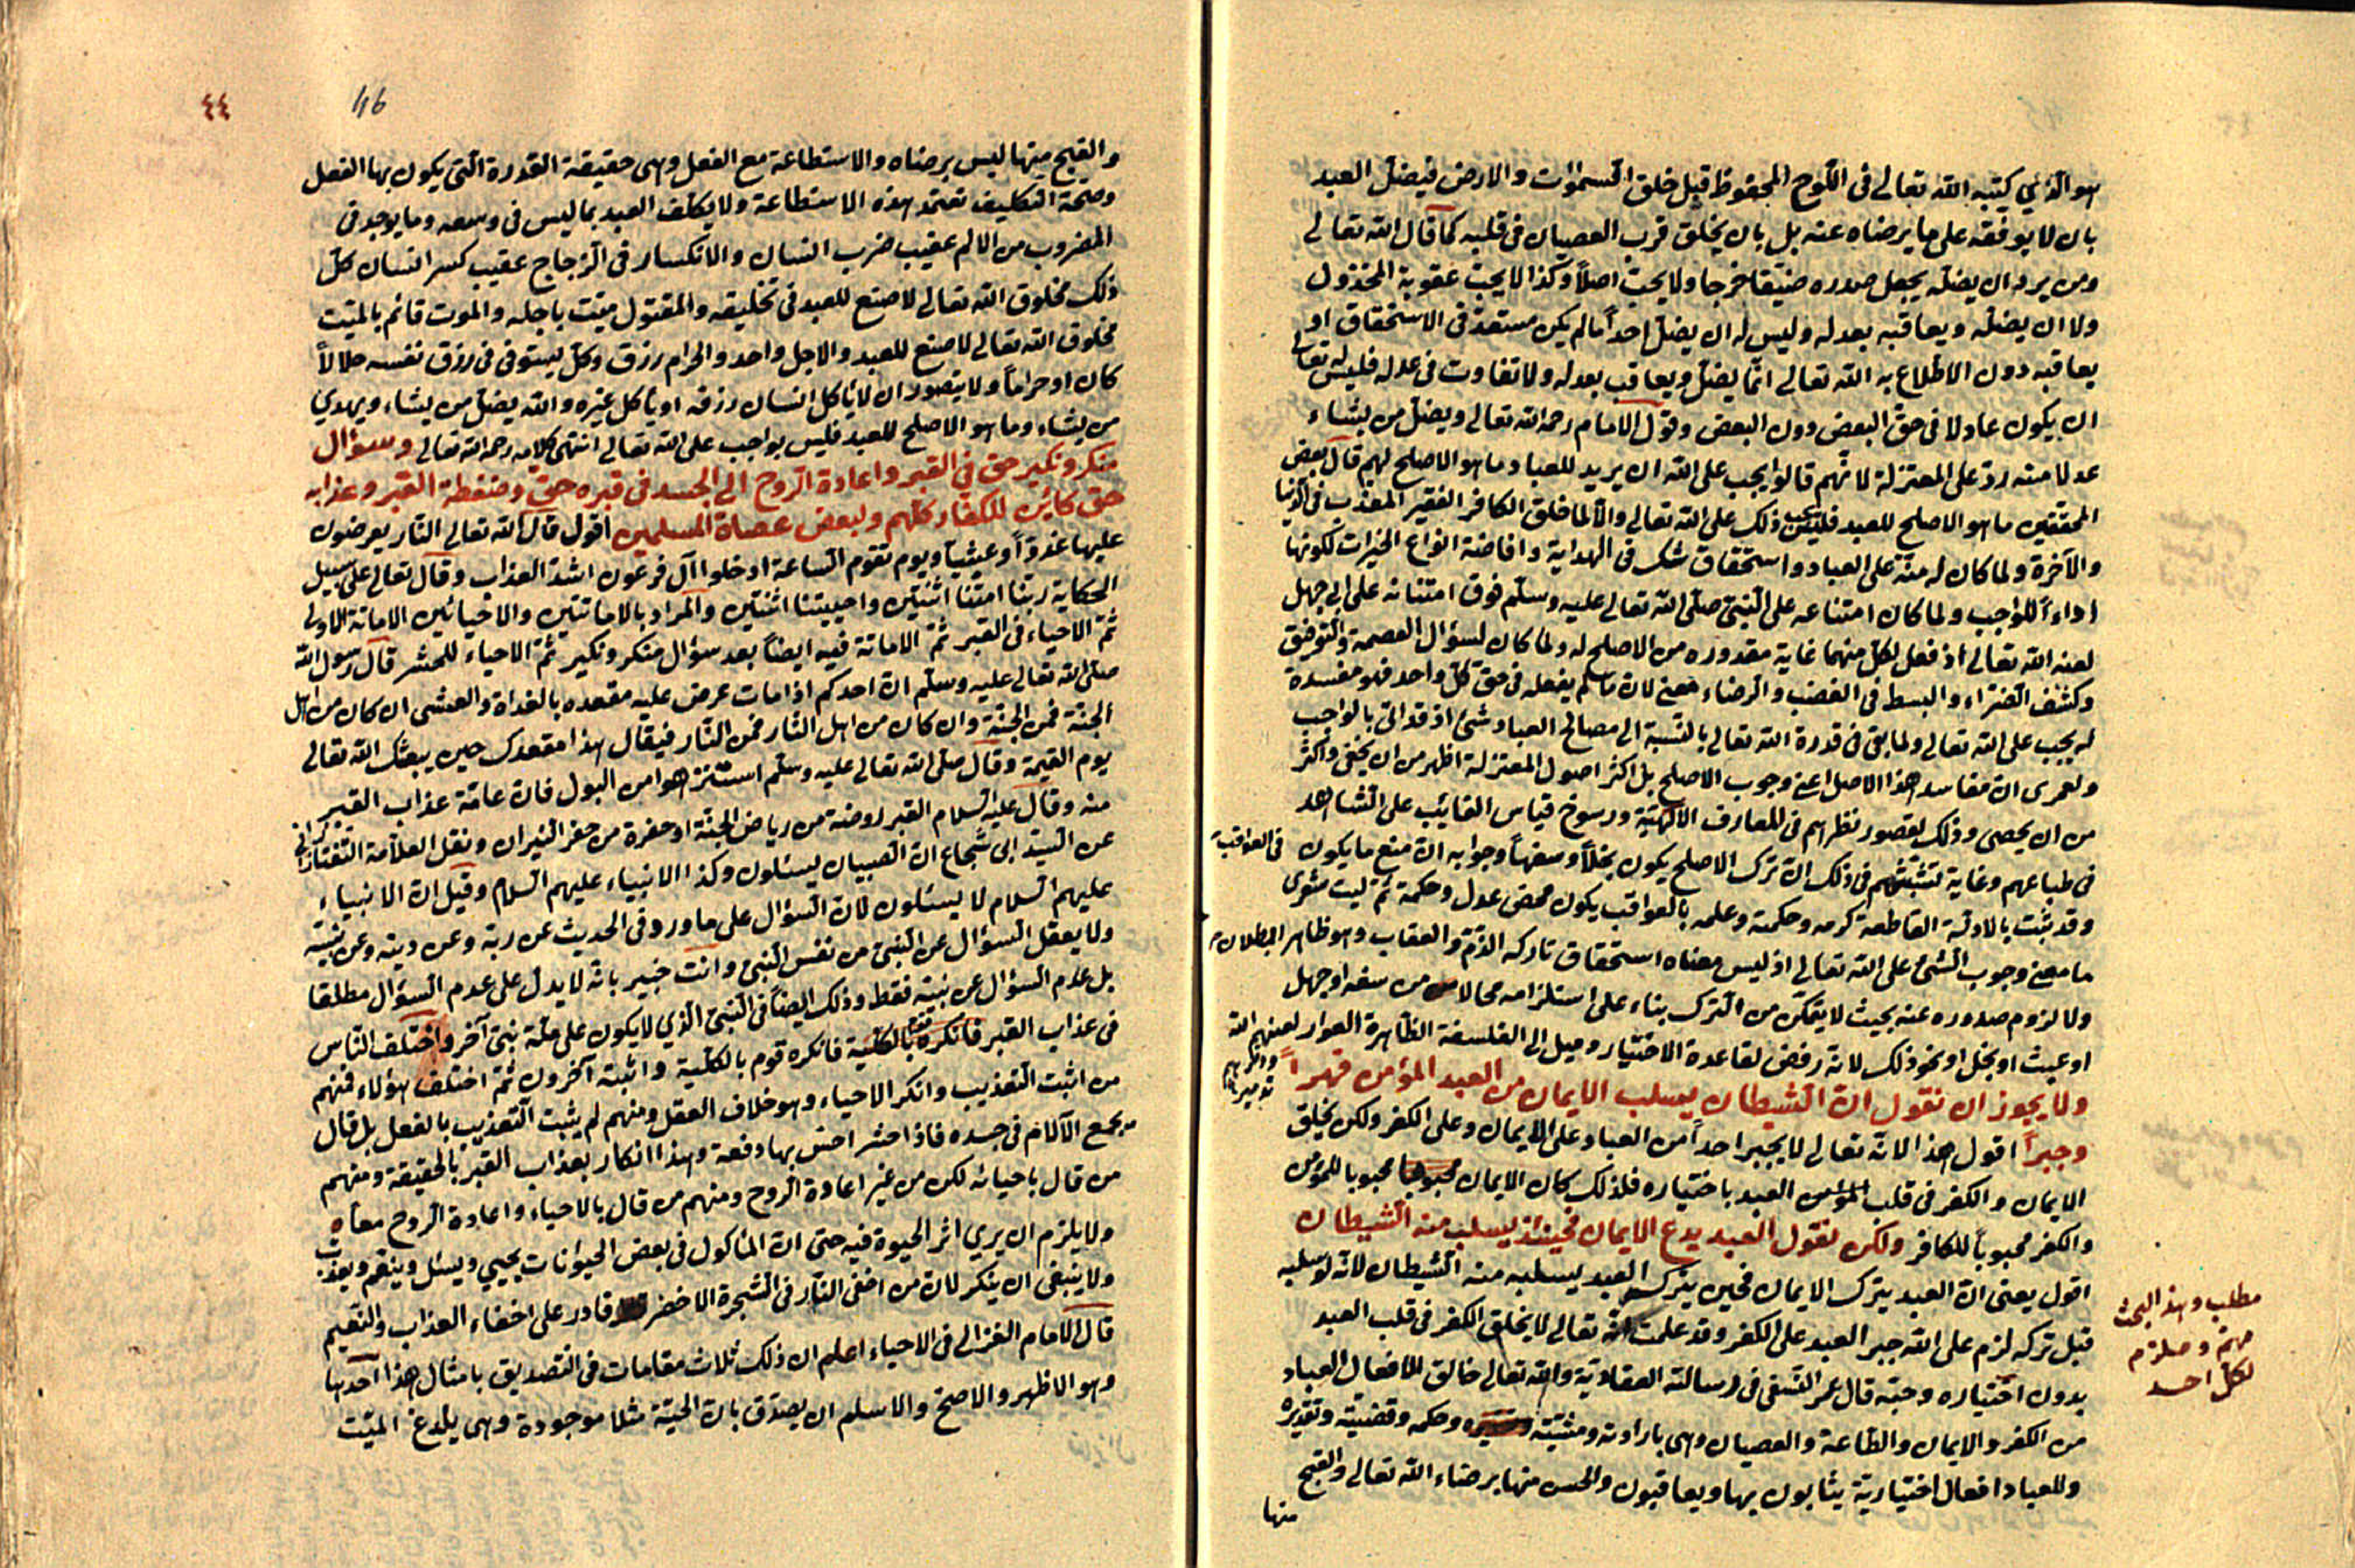 هو الذي كتبه الله تعالى فى اللوح المحفوظ قبل خلق السموات والارض فيضل العبد
بان لا يوفقه على ما يرضاه عنه بل بان يخلق قرب العصيان فى قلبه كما قال الله تعالى
ومن يرد ان يضله يجعل صدره ضيقا حرجا ولا يجب اصلاً وكذا لا يجب عقوبة المخذول
ولا ان يضله ويعاقبه بعدله وليس له ان يضل احداً مالم يكن مستعد فى الاستحقاق او
يعاقبه دون الاطلاع به الله تعالى انما يضل ويعاقب بعدله ولا تفاوت فى عدله فليس له تعالى
ان يكون عادلا فى حق البعض دون البعض وقول الامام رحمه الله تعالى ويضل من يشاء
عدلا منه رد على المعتزلة لانهم قالوا يجب على الله ان يريد للعباد ما هو الاصلح لهم قال بعض
المحققين ما هو الاصلح للعبد فليس يجب ذلك على الله تعالى والا لما خلق الكافر الفقير المعذب فى الدنيا
والآخرة ولما كان له منة على العباد واستحقاق شكر فى الهداية وافاضة انواع الخيرات لكونها
اداءاً للواجب ولما كان امتناعه على النبى صلى الله تعالى عليه وسلم فوق امتنانه على ابى جهل
لعنه الله تعالى اذ فعل لكل منهما غاية مقدوره من الاصلح له ولما كان لسؤال العصمة والتوفيق
وكشف الضراء والبسط فى الغضب والرضاء معنى لان ما لم يفعله فى حق كل واحد فهو مفسدة
له يجب على الله تعالى ولما بقى فى قدرة الله تعالى بالنسبة الى مصالح العباد شئ اذ قد اتى بالواجب
ولعمرى ان مفاسد هذا الاصل اعنى وجوب الاصلح بل اكثر اصول المعتزلة اظهر من ان يخفى واكثر
من ان يحصى وذلك لقصور نظرهم فى المعارف الالهية ورسوخ قياس الغائب على الشاهد
فى طباعهم وغاية تشبثهم فى ذلك ان ترك الاصلح يكون بخلاً وسفهاً وجوابه ان منع ما يكون فى العواقب
وقد ثبت بالادلة القاطعة كرمه وحكمته وعلمه بالعواقب يكون محض عدل وحكمة ثم ليت شعرى
ما معنى وجوب الشئ على الله تعالى اذ ليس معناه استحقاق تاركه الذم والعقاب وهو ظاهر البطلان
ولا لزوم صدوره عنه بحيث لا يتمكن من الترك بناء على استلزامه محالا من سفه او جهل
او عبث او بخل او نحو ذلك لانه رفض لقاعدة الاختيار وميل الى الفلسفة الظاهرة العوار لعنهم الله
ولا يجوز ان نقول ان الشيطان يسلب الايمان من العبد المؤمن قهراً
وجبراً اقول هذا لانه تعالى لا يجبر احداً من العباد على الايمان وعلى الكفر ولكن يخلق
الايمان والكفر فى قلب المؤمن العبد باختياره فلذلك كان الايمان محبوبا للمؤمن
والكفر محبوباً للكافر ولكن نقول العبد يدع الايمان فحينئذ يسلب منه الشيطان
اقول يعنى ان العبد يترك الايمان فحين يترك العبد يسلبه منه الشيطان لانه لو سلبه
قبل تركه لزم على الله جبر العبد على الكفر وقد علمت انه تعالى لا يخلق الكفر فى قلب العبد
بدون اختياره وحبه قال عمر النسفى فى رسالته العقادية والله تعالى خالق لافعال العباد
من الكفر والايمان والطاعة والعصيان وهى بارادته ومشيته وحكمه وقضيته وتقديره
وللعباد افعال اختيارية يثابون بها ويعاقبون والحسن منها برضاء الله تعالى والقبيح
منها
مطلب وهذا البحث
مهم وملزم
لكل احد
٤٤
46
والقبيح منها ليس برضاه والاستطاعة مع الفعل وهى حقيقة القدرة التى يكون بها الفعل
وصحة التكليف تعتمد هذه الاستطاعة ولا يكلف العبد بما ليس فى وسعه وما يوجد فى
المضروب من الالم عقيب ضرب انسان والانكسار فى الزجاج عقيب كسر انسان كل
ذلك مخلوق الله تعالى لا صنع للعبد فى تخليقه والمقتول ميت باجله والموت قائم بالميت
مخلوق الله تعالى لا صنع للعبد والاجل واحد والحرام رزق وكل يستوفى فى رزق نفسه حلالاً
كان او حراماً ولا يتصور ان لا ياكل انسان رزقه او ياكل غيره والله يضل من يشاء ويهدي
من يشاء وما هو الاصلح للعبد فليس بواجب على الله تعالى انتهى كلامه رحمه الله تعالى وسؤال
منكر ونكير حق فى القبر واعادة الروح الى الجسد فى قبره حق وضغطة القبر وعذابه
حق كائن للكفار كلهم ولبعض عصاة المسلمين اقول قال الله تعالى النار يعرضون
عليها غدواً وعشياً ويوم تقوم الساعة ادخلوا آل فرعون اشد العذاب وقال تعالى على سبيل
الحكاية ربنا امتنا اثنتين واحييتنا اثنتين والمراد بالاماتتين والاحيائين الاماتة الاولى
ثم الاحياء فى القبر ثم الاماتة فيه ايضاً بعد سؤال منكر ونكير ثم الاحياء للحشر قال رسول الله
صلى الله تعالى عليه وسلم ان احدكم اذا مات عرض عليه مقعده بالغداة والعشى ان كان من اهل
الجنة فمن الجنة وان كان من اهل النار فمن النار فيقال هذا مقعدك حين يبعثك الله تعالى
يوم القيمة وقال صلى الله تعالى عليه وسلم استنزهوا من البول فان عامة عذاب القبر
منه وقال عليه السلام القبر روضة من رياض الجنة او حفرة من حفر النيران ونقل العلامة التفتازانى
عن السيد ابى شجاع ان الصبيان يسئلون وكذا الانبياء عليهم السلام وقيل ان الانبياء
عليهم السلام لا يسئلون لان السؤال على ما ورد فى الحديث عن ربه وعن دينه وعن نبيه
ولا يعقل السؤال عن النبى من نفس النبى وانت خبير بانه لا يدل على عدم السؤال مطلقا
بل عدم السؤال عن نبيه فقط وذلك ايضاً فى النبى الذي لا يكون على ملة نبى آخر واختلف الناس
فى عذاب القبر فانكره قوم بالكلية واثبته آخرون ثم اختلف هؤلاء فمنهم
من اثبت التعذيب وانكر الاحياء وهو خلاف العقل ومنهم لم يثبت التعذيب بالفعل بل قال
يجمع الآلام فى جسده فاذا حشر احس بها دفعة وهذا انكار بعذاب القبر بالحقيقة ومنهم
من قال باحيائه لكن من غير اعادة الروح ومنهم من قال بالاحياء واعادة الروح معاً
ولا يلزم ان يرى اثر الحيوة فيه حتى ان المأكول فى بعض الحيوانات يحيى ويسئل وينعم ويعذب
ولا ينبغى ان ينكر لان من اخفى النار فى الشجرة الاخضر قادر على اخفاء العذاب والنعيم
قال الامام الغزالى فى الاحياء اعلم ان ذلك ثلاث مقامات فى التصديق بامثال هذا احدها
وهو الاظهر والاصح والاسلم ان يصدق بان الحية مثلا موجودة وهى يلدغ الميت